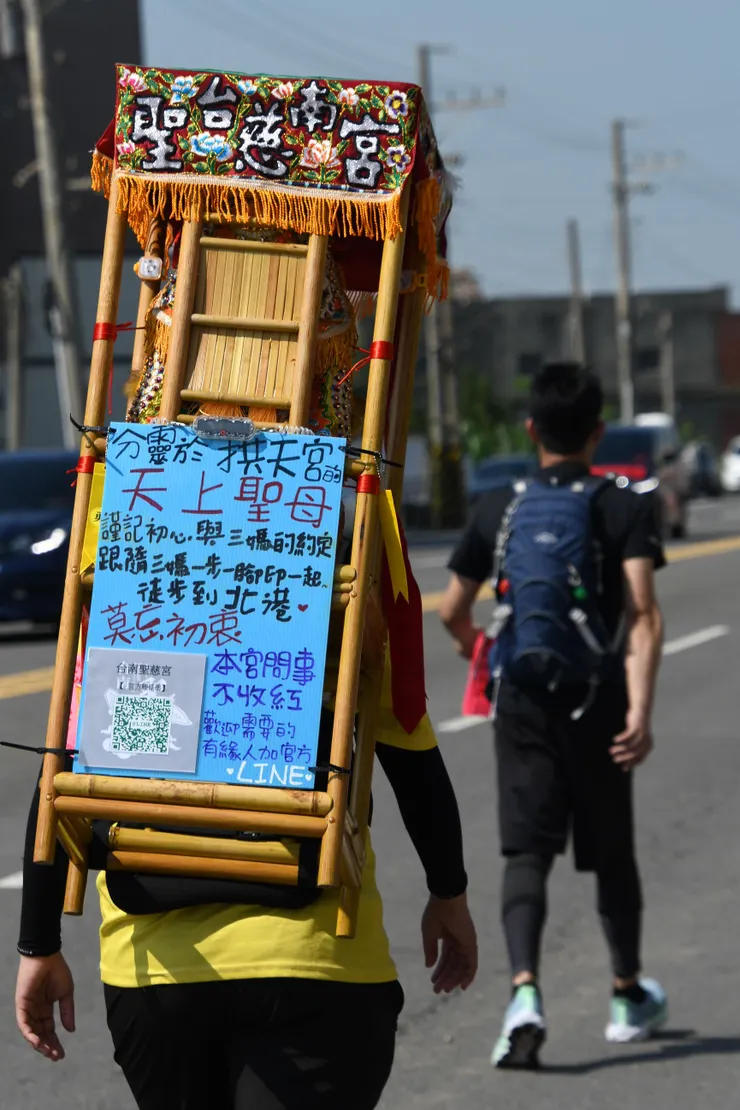 台南
聖慈宮
分靈於 拱天宮的
天上聖母
謹記初心與三媽的約定
跟隨三媽一步一腳印一起
徒步到北港
莫忘初衷
台南聖慈宮
LINE
本宮問事
不收紅
歡迎需要的
有緣人加官方
LINE